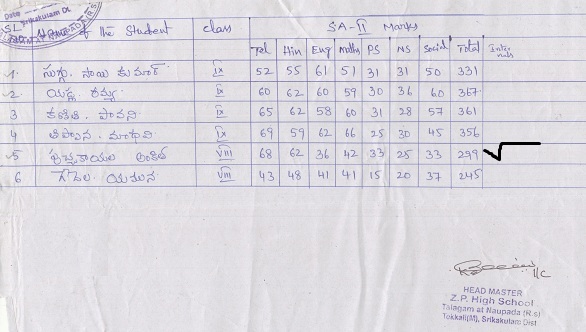 Date
Srikakulam Dt
SL of the Student class SA-II Marks
Tel Hin Eng Maths PS NS Social Total Inter nals
1. సాయి కుమార్ IX 52 55 61 51 31 31 50 331
2. రమ్య IX 60 62 60 59 30 36 60 367
3 పావని IX 65 62 58 60 31 28 57 361
4 మాధవి IX 69 59 62 66 25 30 45 356
5 VIII 68 62 36 42 33 25 33 299
6 యమున VIII 43 48 41 41 15 20 37 245
I/C
HEAD MASTER
Z.P. High School
Talagam at Naupada (R.s)
Tekkali(M), Srikakulam Dist